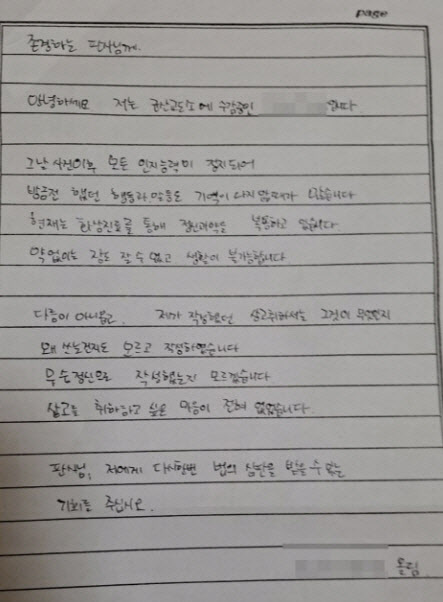 page
존경하는 판사님께.
안녕하세요 저는 군산교도소에 수감중인 입니다.
그날 사건이후 모든 인지능력이 정지되어
방금전 했던 행동과 말들도 기억이 나지 않을때가 많습니다
현재는 화상진료를 통해 정신과약을 복용하고 있습니다.
약 없이는 잠도 잘 수 없고 생활이 불가능합니다
다름이 아니옵고. 제가 작성했던 상고취하서는 그것이 무엇인지
왜 쓰는건지도 모르고 작성하였습니다
무슨정신으로 작성했는지 모르겠습니다
상고를 취하하고 싶은 마음이 전혀 없었습니다.
판사님, 저에게 다시한번 법의 심판을 받을 수 있는
기회를 주십시오.
올림.